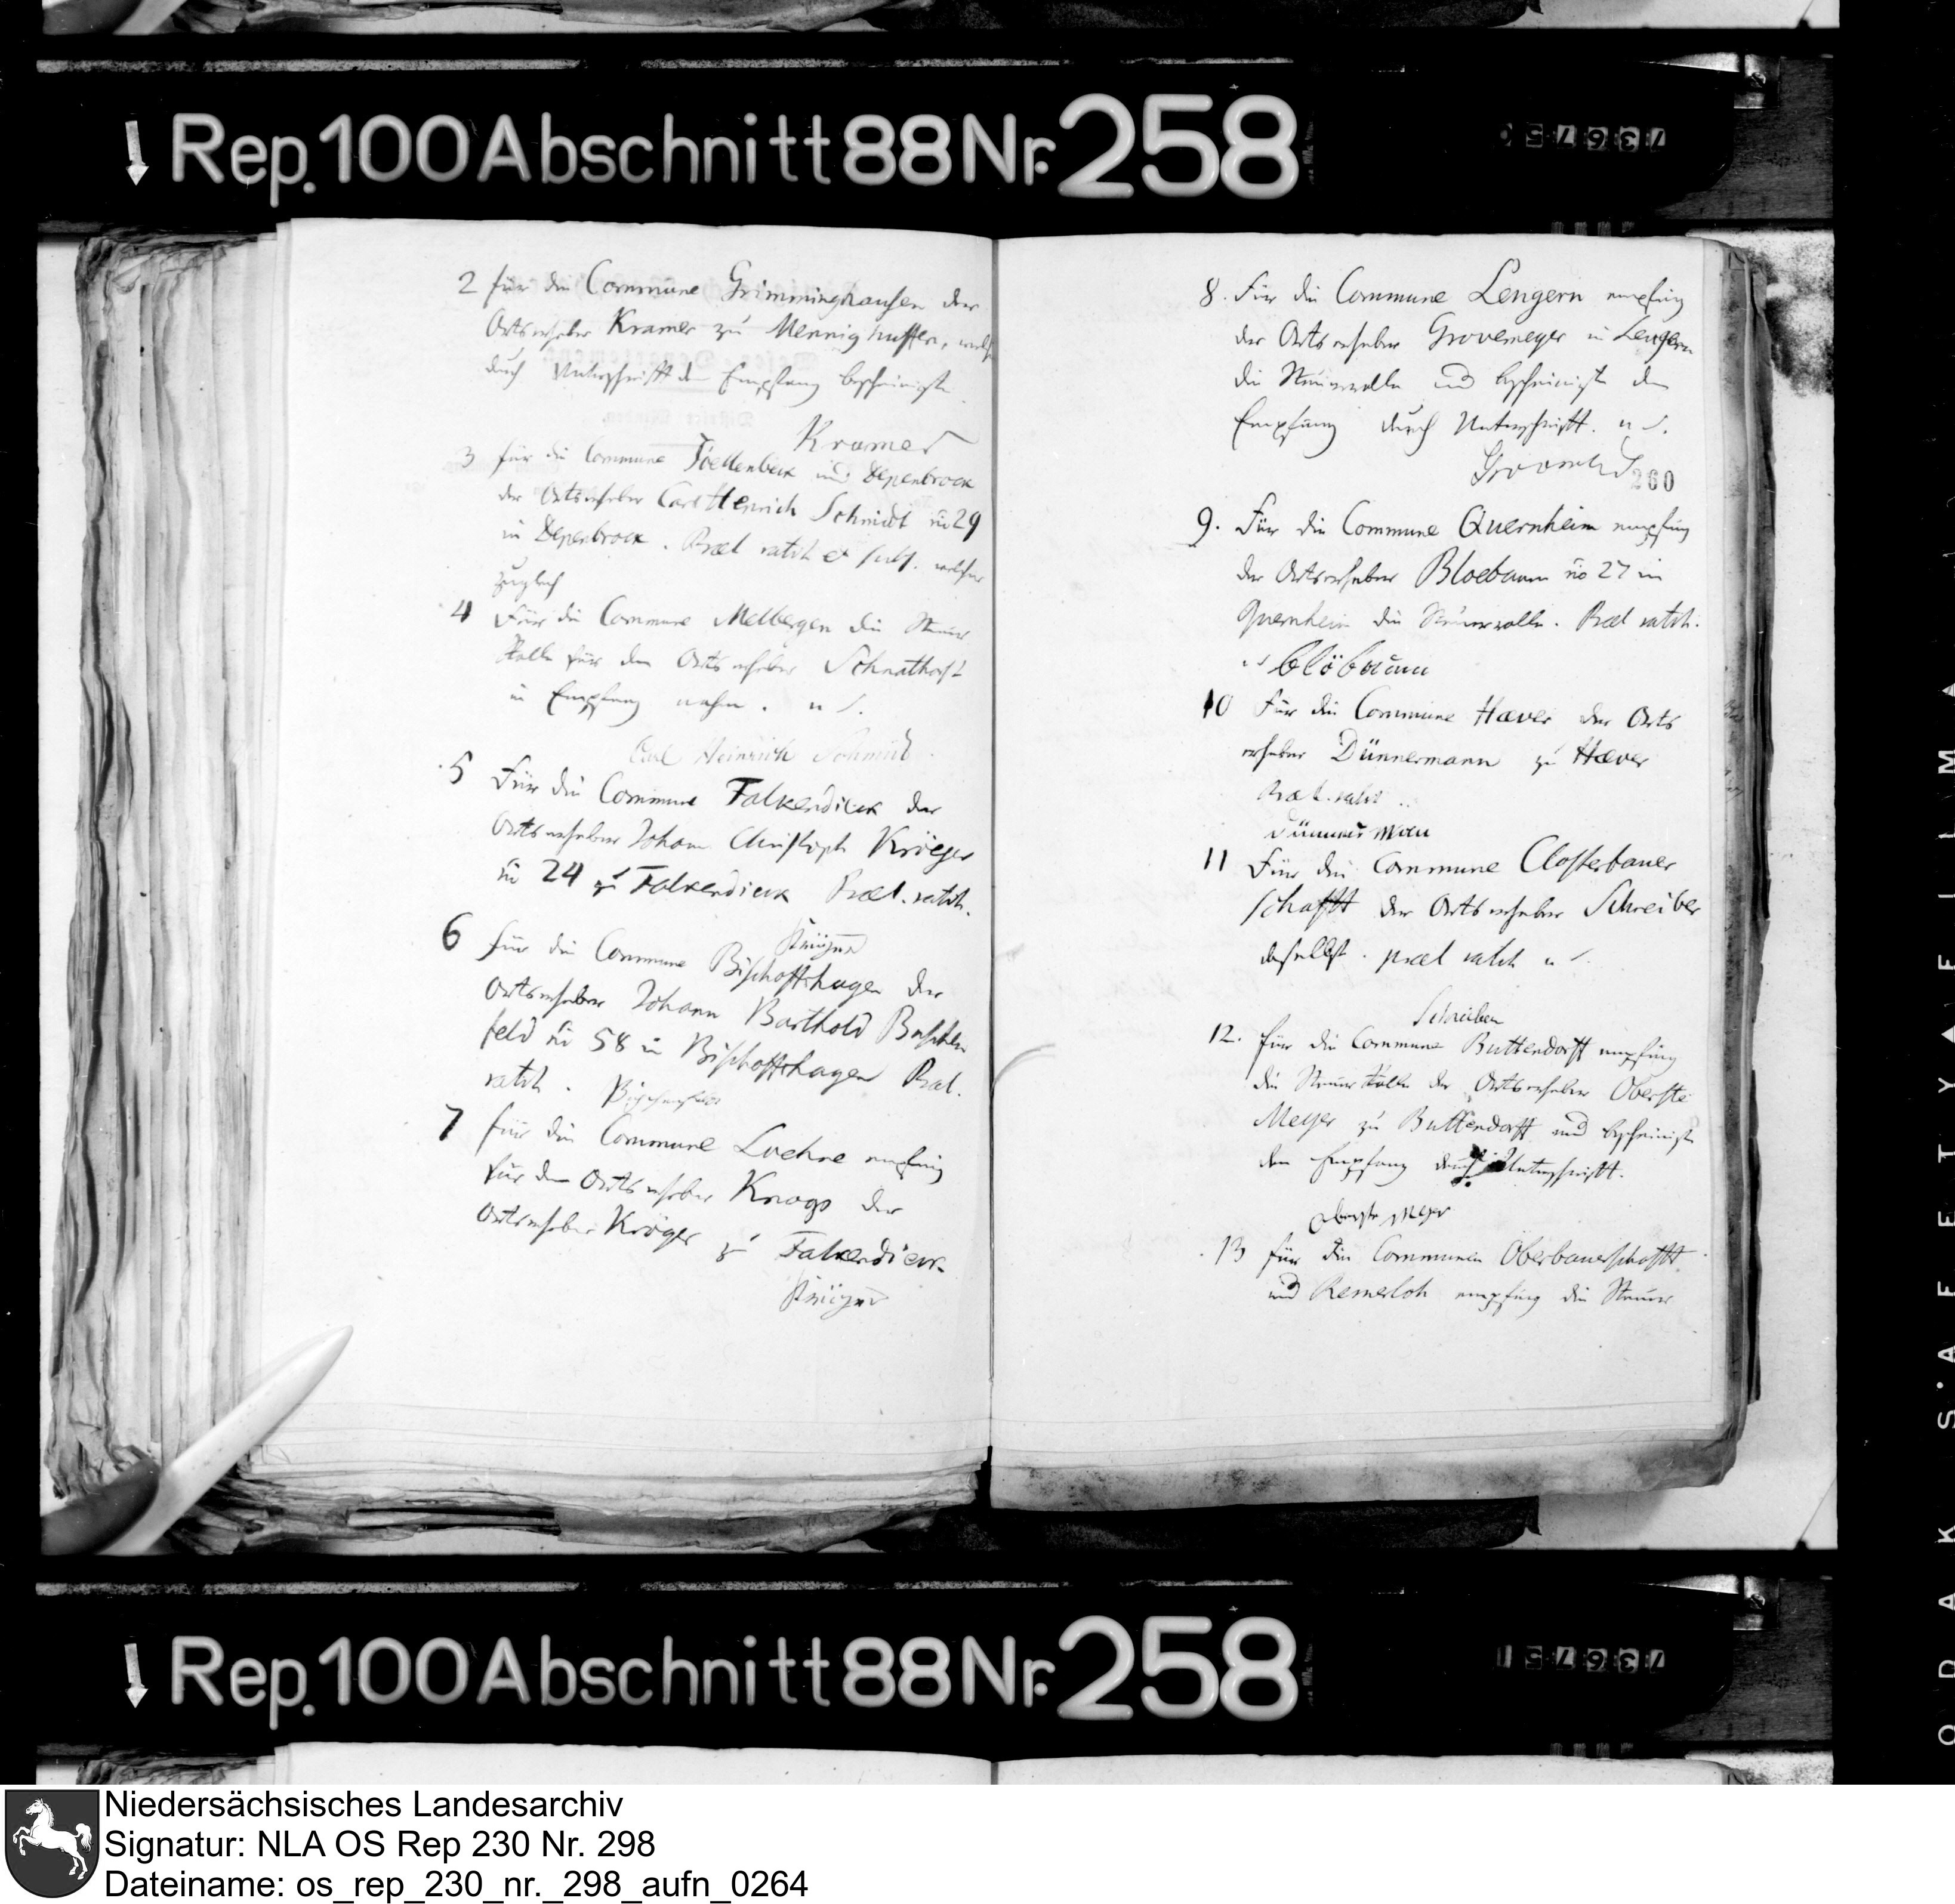 Rep. 100 Abschnitt 88 Nr. 258
73675
2 für die Commune Grimminghausen der
Ortserheber Kramer zu Mennighuffen, welche
durch Unterschrifft den Empfang bescheinigte.
Kramer
3 für die Commune Toellenbeck und Depenbrock
der Ortserheber Carl Henrich Schmidt no 29
in Depenbrock. Prael. ratih. et subs. welcher
zugleich
4 Für die Commune Melbergen die Steuer
Rolle für den Ortserheber Schnathorst
in Empfang nahm. u. s.
Carl Heinrich Schmidt
5 Für die Commune Falkendieck der
Ortserheber Johann Christoph Kröeger
no 24 zu Falkendieck Prael. ratih.
Kröger
6 für die Commune Bischoffshagen der
Ortserheber Johann Barthold Buschen
feld no 58 in Bischoffshagen Prael.
ratih.
7 für die Commune Loehne empfing
für den Ortserheber Knogs der
Ortserheber Kröger zu Falkendieck.
Kröger
8. Für die Commune Lengern empfing
der Ortserheber Grovemeyer in Lengern
die Steuerrolle und bescheinigte den
Empfang durch Unterschrifft. u. s.
260
9. Für die Commune Quernheim empfing
der Ortserheber Bloebaum no 27 in
Quernheim die Steuerrolle. Prael. ratih.
u s blöbaum
10 Für die Commune Haever der Orts
erheber Dünnermann zu Haever
Prael. ratih.
Dünnerman
11 Für die Commune Closterbauer
schafft der Ortserheber Schreiber
daselbst. prael. ratih. u. s.
Schreiber
12. für die Commune Buttendorff empfing
die Steuer Rolle der Ortserheber Oberste
Meyer zu Buttendorff und bescheinigte
den Empfang durch Unterschrifft.
Oberste Meyer
13 für die Communen Oberbauerschafft
und Remerloh empfing die Steuer
Rep. 100 Abschnitt 88 Nr. 258
73675
KODAK SAFETY FILM
Niedersächsisches Landesarchiv
Signatur: NLA OS Rep 230 Nr. 298
Dateiname: os_rep_230_nr._298_aufn_0264